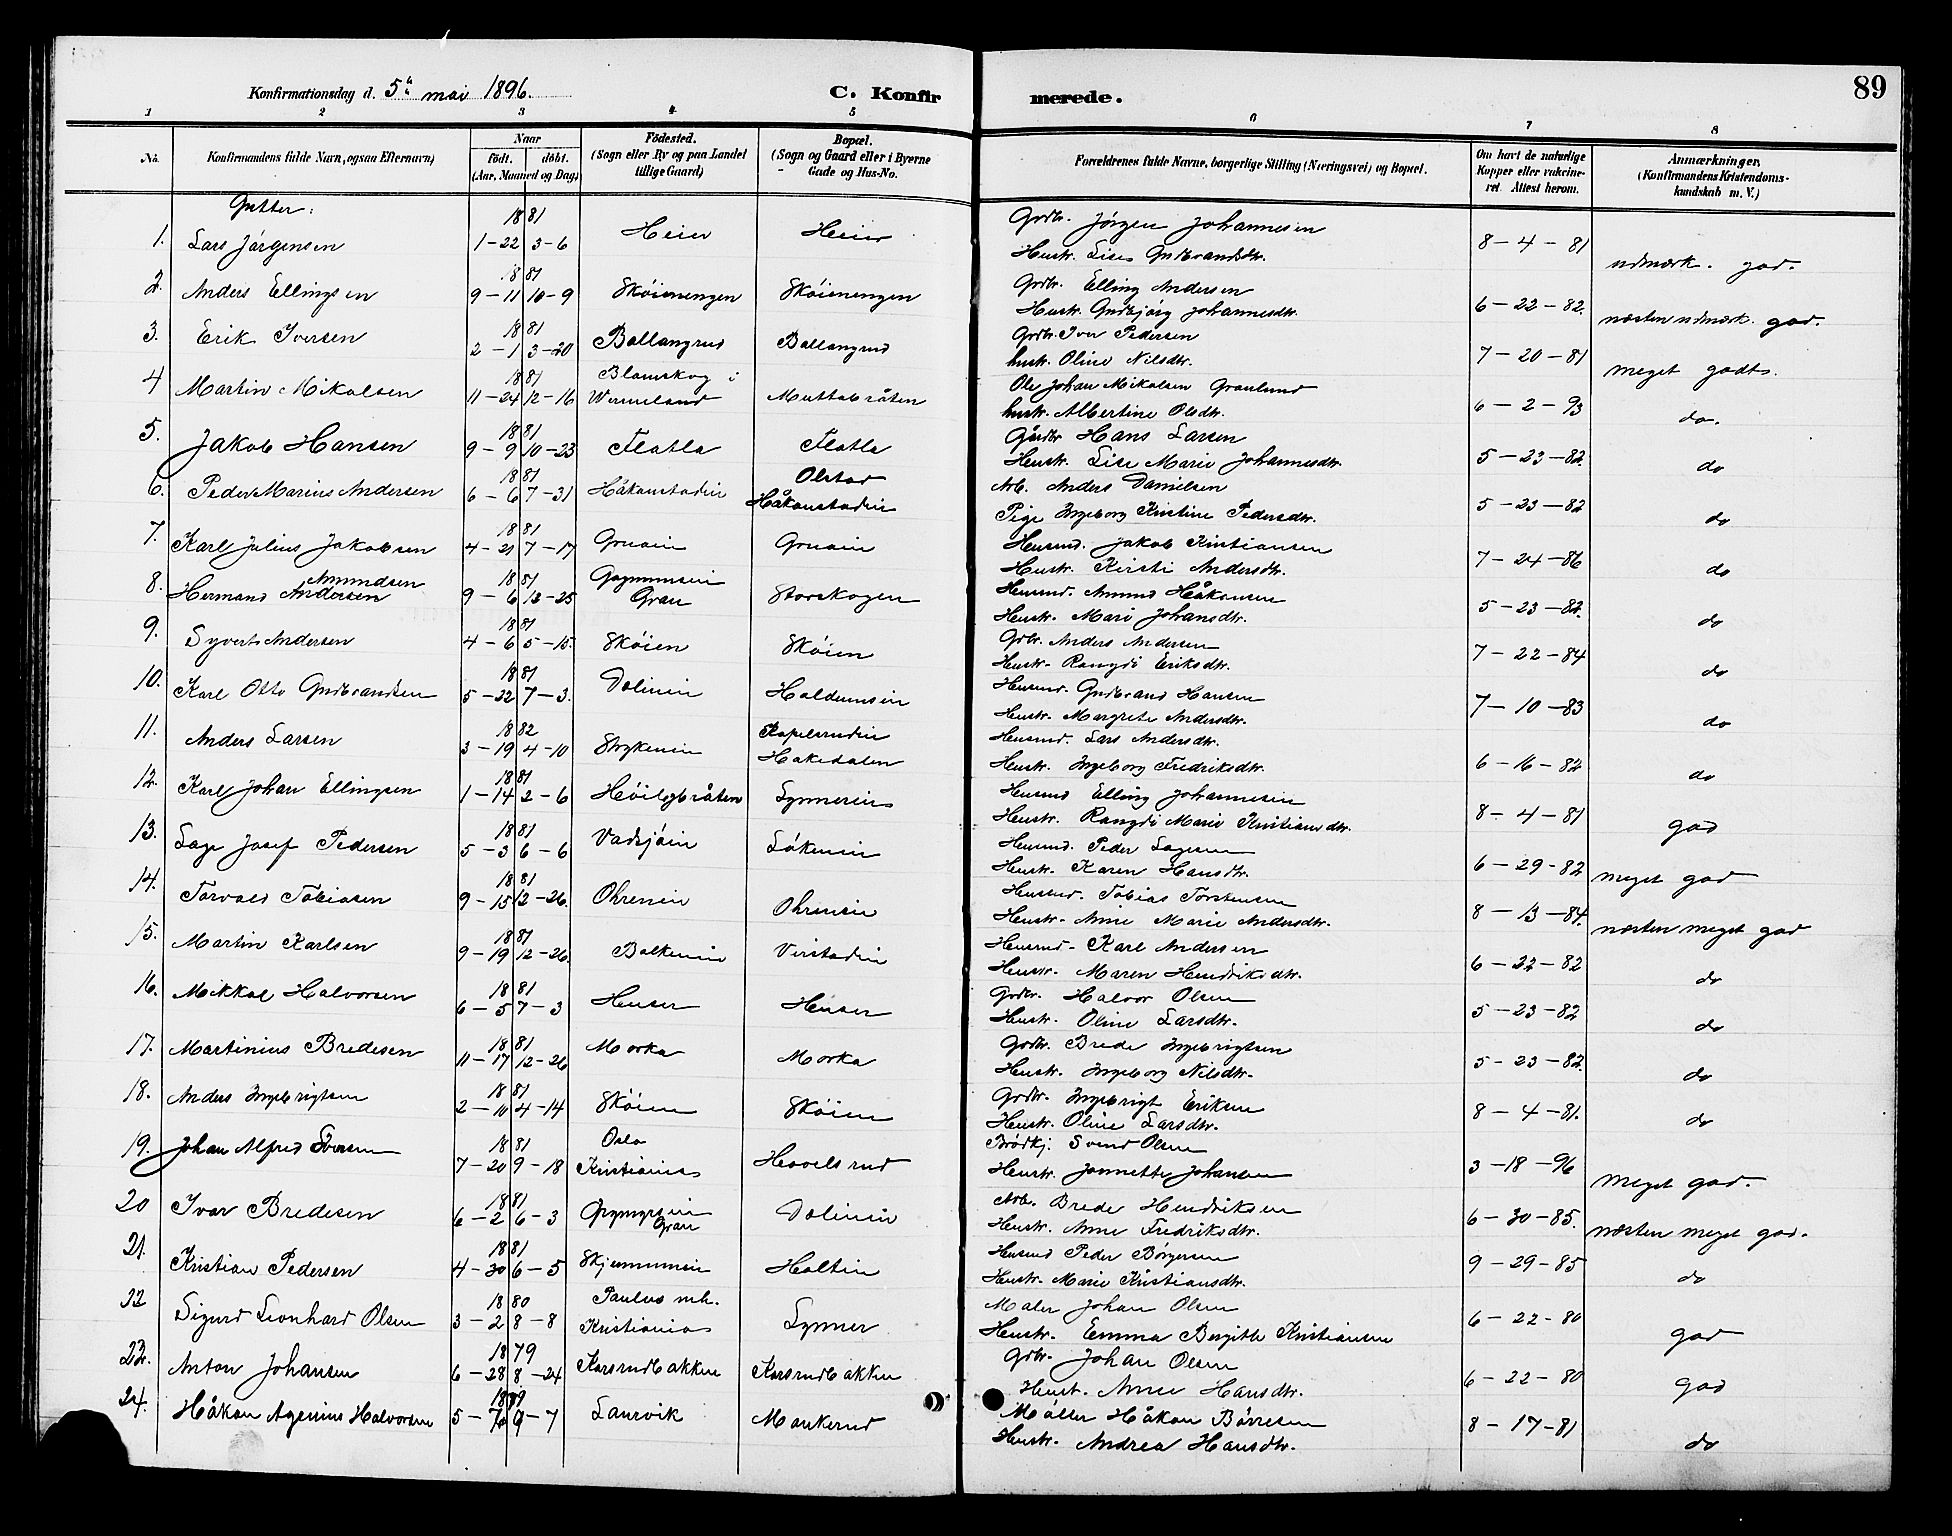 89
Konfirmationsdag d. 5te mai 1896. C. Konfirmerede.
1 2 3 4 5 6 7 8
No. Konfirmandens fulde Navn, ogsaa Efternavn) Naar födt. döbt. (Aar, Maaned og Dag) Födested. (Sogn eller By og paa Landet tillige Gaard) Bopæl. (Sogn og Gaard eller i Byerne Gade og Hus-No. Forældrenes fulde Navne, borgerlige Stilling (Næringsvei) og Bopæl. Om havt de naturlige Kopper eller vaccineret. Attest herom. Anmærkninger, (Konfirmandens Kristendomskundskab m. V.)
Gutter:
1. Lars Jörgensen 1881 1-22 3-6 Heier Heier Grdbr. Jörgen Johannesen
Hustr. Lise Gudbrandsdtr. 8-4-81 udmærk. god.
2. Anders Ellingsen 1881 9-11 10-9 Sköienengen Sköienengen Grdbr. Elling Andersen
Hustr. Gudbjörg Johannesdtr. 6-22-82. næsten udmærk. god.
3. Erik Iversen 1881 2-1 3-20 Ballangrud Ballangrud Grdbr. Iver Pedersen
hustr. Oline Nilsdtr. 7-20-81 meget godt.
4 Martin Mikalsen 1881 11-24 12-16 Blomskog i Wermeland Muttabråten Ole Johan Mikalsen Granlund
hustr. Albertine Olsdtr. 6-2-93 do.
5. Jakob Hansen 1881 9-9 10-23 Flatla Flatla Gårdbr Hans Larsen
Hustr. Lise Marie Johannesdtr. 5-23-82. do
6. Peder Marius Andersen 1881 6-6 7-31 Håkonstadeie Olstad Håkonstadeie Arb. Anders Danielsen
Pige Ingeborg Kristine Pedersdtr. 5-23-82 do
7. Karl Julius Jakobsen 1881 4-21 7-17 Gruaeie Gruaeie Husmd. Jakob Kristiansen
Hustr. Kirsti Andersdtr. 7-24-86 do
8. Hermand Amundsen Andersen 1881 9-6 12-25 Gran Storskogen Husmd. Amund Håkonsen
Hustr. Mari Johansdtr. 5-23-82. do
9. Syvert Andersen 1881 4-6 5-15. Sköien Sköien Grdbr. Anders Andersen
Hustr. Rangdi Eriksdtr. 7-22-84 do
10. Karl Otto Gudbrandsen 1881 5-22 7-3. Dolineie Haldumseie Husmd. Gudbrand Hansen
Hustr. Margrete Andersdtr. 7-10-83 do
11. Anders Larsen 1882 3-19 4-10 Strykeneie Kapelsrudeie Hakedalen Husmd. Lars Andersdtr.
Hustr. Ingeborg Fredriksdtr. 6-16-82 do
12. Karl Johan Ellingsen 1881 1-14 2-6 Lynnereie Husmd Elling Johannesen
Hustr. Rangdi Marie Kristiansdtr. 8-4-81 god
13. Lage Josef Pedersen 1881 5-3 6-6 Vadsjöeie Lökeneie Husmd. Peder Lagesen
Hustr. Karen Hansdtr. 6-29-82 meget god
14. Torvald Tobiasen 1881 9-15 12-26. Ohreneie Ohreneie Husmd. Tobias Torstensen
Hustr. Anne Marie Andersdtr. 8-13-84. næsten meget god
15. Martin Karlsen 1881 9-19 12-26. Balkeneie Virstadeie Husmd. Karl Andersen
Hustr. Maren Hendriksdtr. 6-22-82 do
16. Mikkal Halvorsen 1881 6-5 7-3 Huser Huser Grdbr. Halvor Olsen
Hustr. Oline Larsdtr. 5-23-82 do
17. Martinius Bredesen 1881 11-17 12-26 Morka Morka Grdbr. Brede Ingebrigtsen
Hustr. Ingeborg Nilsdtr. 5-23-82. do
18. Anders Ingebrigtsen 1881 2-10 4-14 Sköien Sköien Grdbr. Ingebrigt Eriksen
Hustr. Oline Larsdtr. 8-4-81. do
19. Johan Alfred 1881 7-20 9-18 Oslo Kristiania Hovelsrud Brödkj. Svend Olsen
Hustr. Jannette Johansen 3-18-96 meget god.
20 Ivar Bredesen 1881 6-2 6-3 Gran Dolineie Arb. Brede Hendriksen
Hustr. Anne Fredriksdtr. 6-30-85. næsten meget god.
21. Kristian Pedersen 1881 4-30 6-5 Holteie Husmd Peder Börgersen
Hustr. Marie Kristiansdtr. 9-29-85 do
22 Sigurd Leonhard Olsen 1880 3-2 8-8 Paulus mh. Kristiania Lynner Maler Johan Olsen
Hustr. Emma Bergitte Kristiansen 6-22-80 god
23. Anton Johansen 1879 6-28 8-24 Korsrudbakken Korsrudbakken Grdbr. Johan Olsen
Hustr. Anne Hansdtr. 6-22-80 god
24. Håkon Agenius Halvorsen 1879 9-7 Laurvik Maukerud Möller Håkon Börresen
Hustr. Andrea Hansdtr. 8-17-81 do